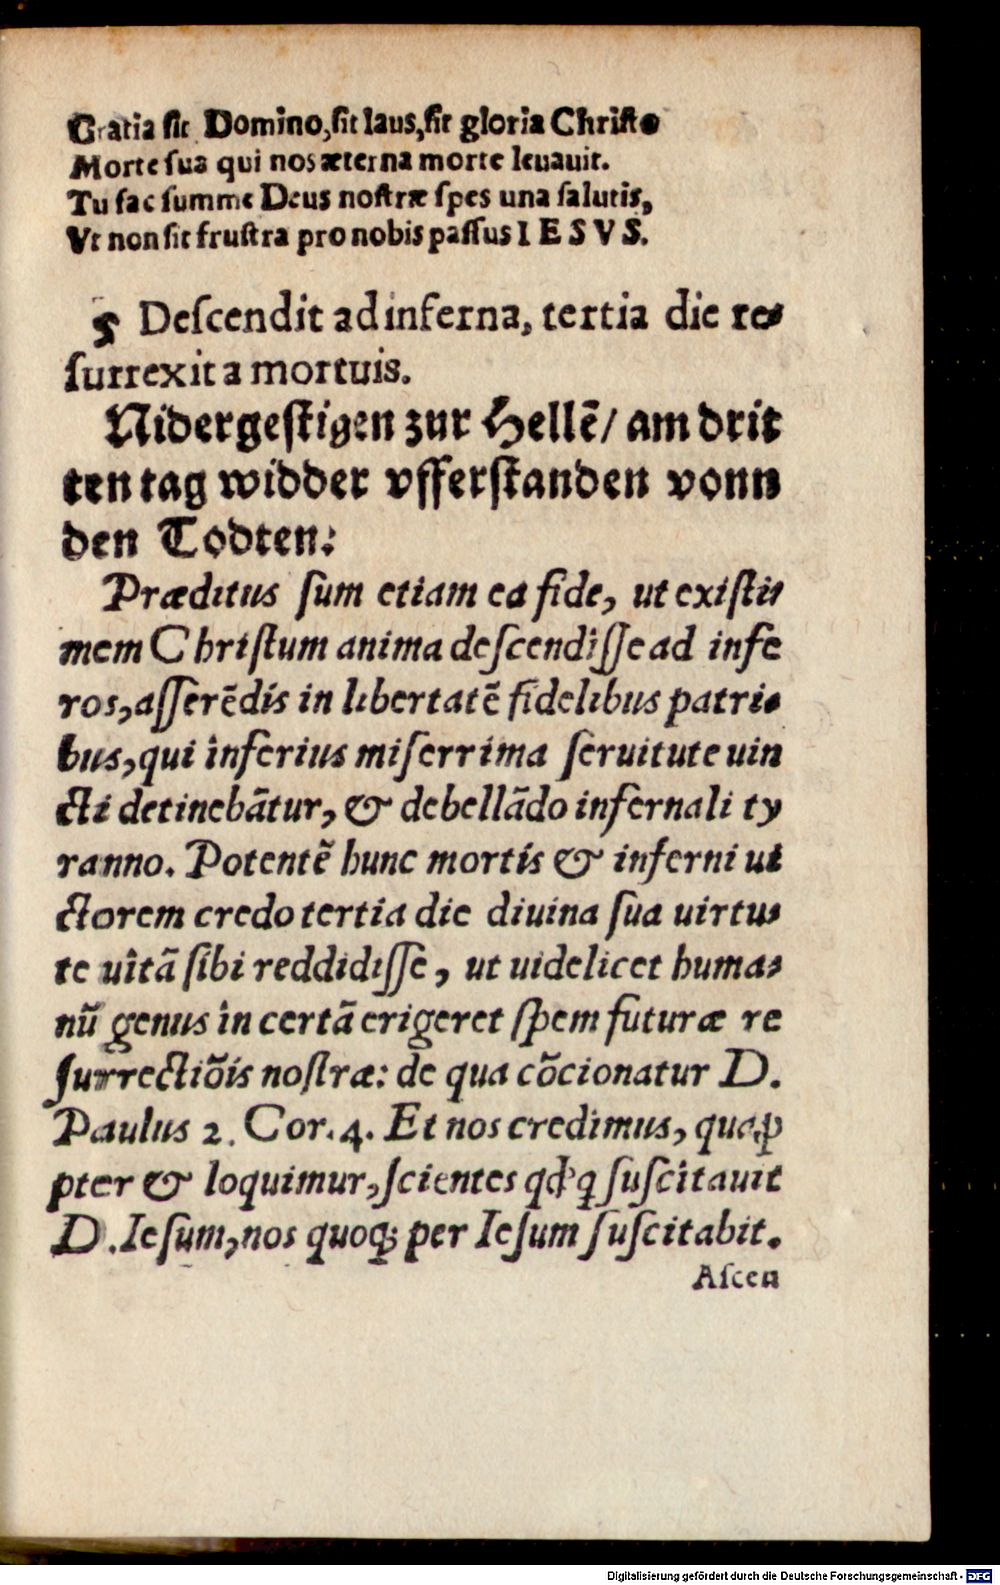 Gratia sit Domino, sit laus, sit gloria Christo
Morte sua qui nos æterna morte leuauit.
Tu fac summe Deus nostræ spes una salutis,
Vt non sit frustra pro nobis passus IESVS.
5 Deſcendit ad inferna, tertia die re⸗
ſurrexit a mortuis.
Nidergeſtigen zur Hellē/ am drit
ten tag widder vfferſtanden vonn
den Todten:
Præditus ſum etiam ea fide, ut exiſti⸗
mem Chriſtum anima deſcendiſſe ad infe
ros, aſſerēdis in libertatē fidelibus patri⸗
bus, qui inferius miſerrima ſeruitute uin
cti detinebātur, & debellādo infernali ty
ranno. Potentē hunc mortis & inferni ui
ctorem credo tertia die diuina ſua uirtu⸗
te uitā ſibi reddidiſſe, ut uidelicet huma⸗
nū genus in certā erigeret ſpem futuræ re
ſurrectiōis noſtræ: de qua cōcionatur D.
Paulus 2. Cor. 4. Et nos credimus, quaꝓ
pter & loquimur, ſcientes qđ q ſuſcitauit
D. Ieſum, nos quoq; per Ieſum ſuſcitabit.
Aſcen
Digitalisierung gefördert durch die Deutsche Forschungsgemeinschaft - DFG